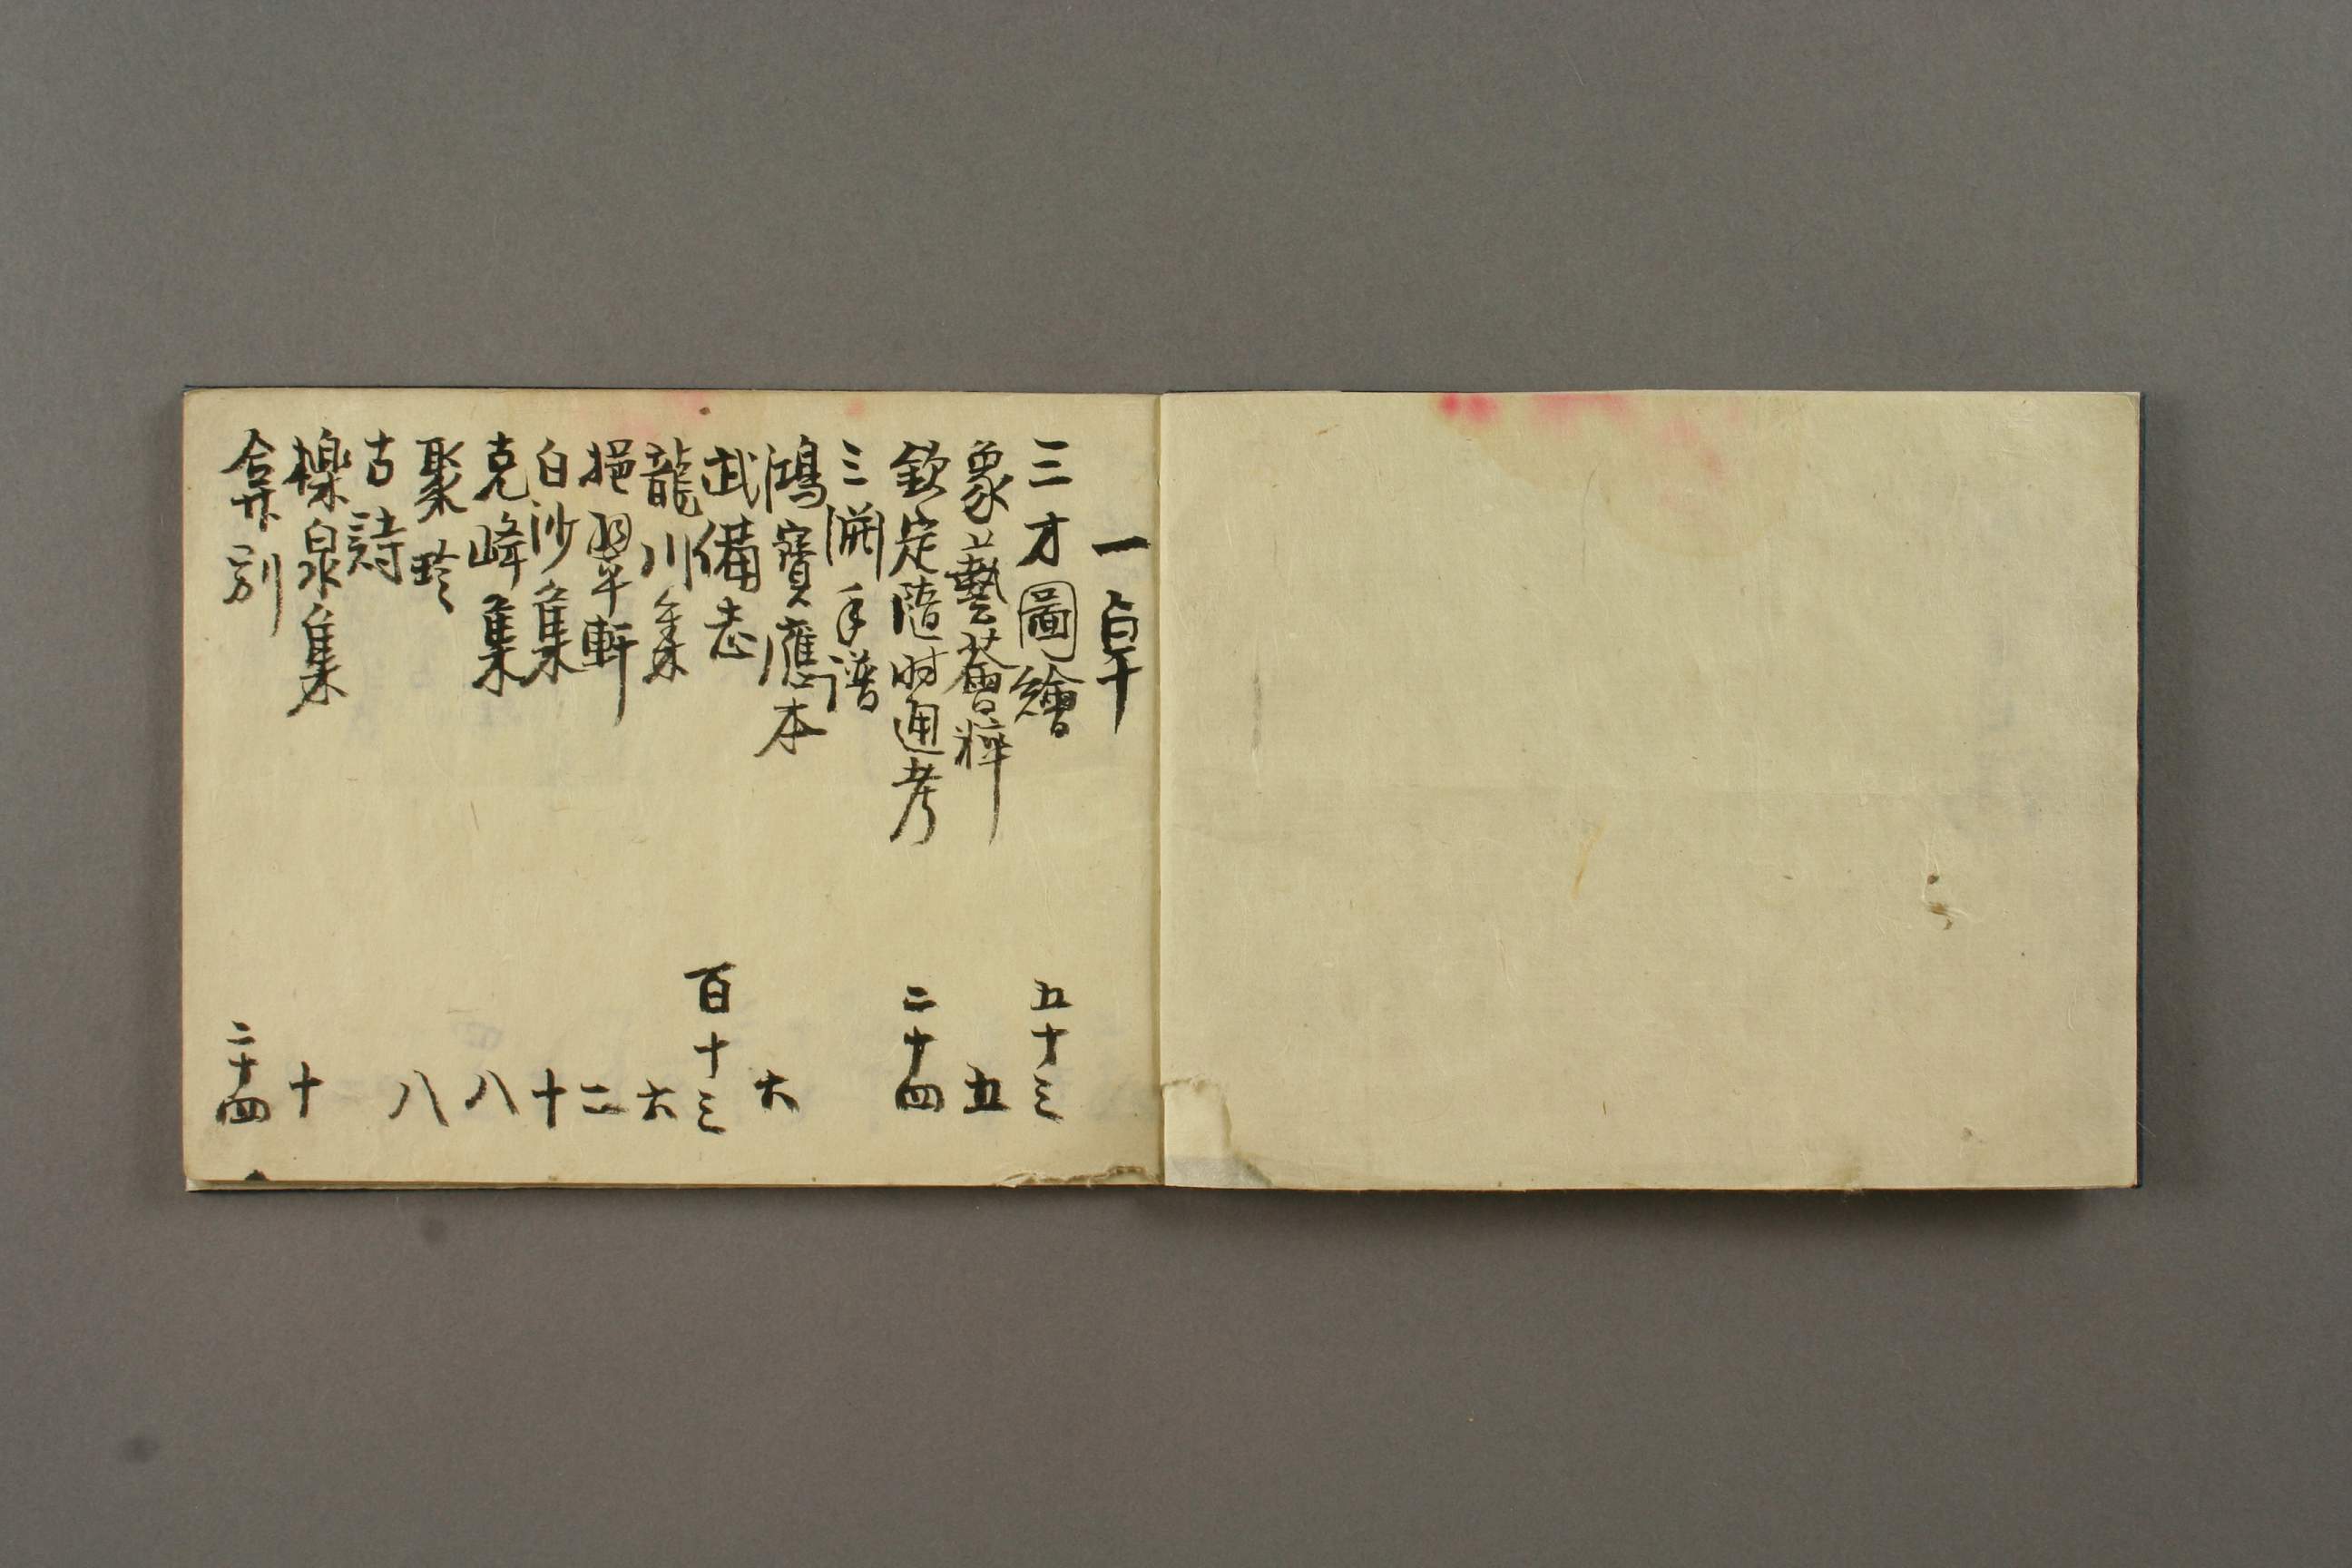 一卓
三才圖繪 五十三
象藝薈粹 五
欽定隨時通考 二十四
三開手譜
鴻寶應本 六
武備志 百十三
龍川集 六
挹翠軒 二
白沙集 十
克峰集 八
聚珍 八
古詩
櫟泉集 十
弇別 二十四